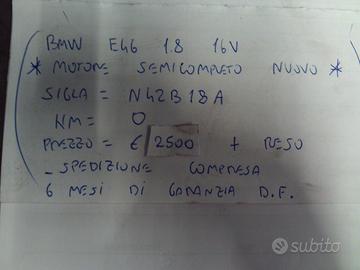 BMW E46 1.8 16V
* MOTORE SEMICOMPLETO NUOVO *
SIGLA = N42B18A
KM = 0
PREZZO = € 2500 + RESO
- SPEDIZIONE COMPRESA
6 MESI DI GARANZIA D.F.
subito